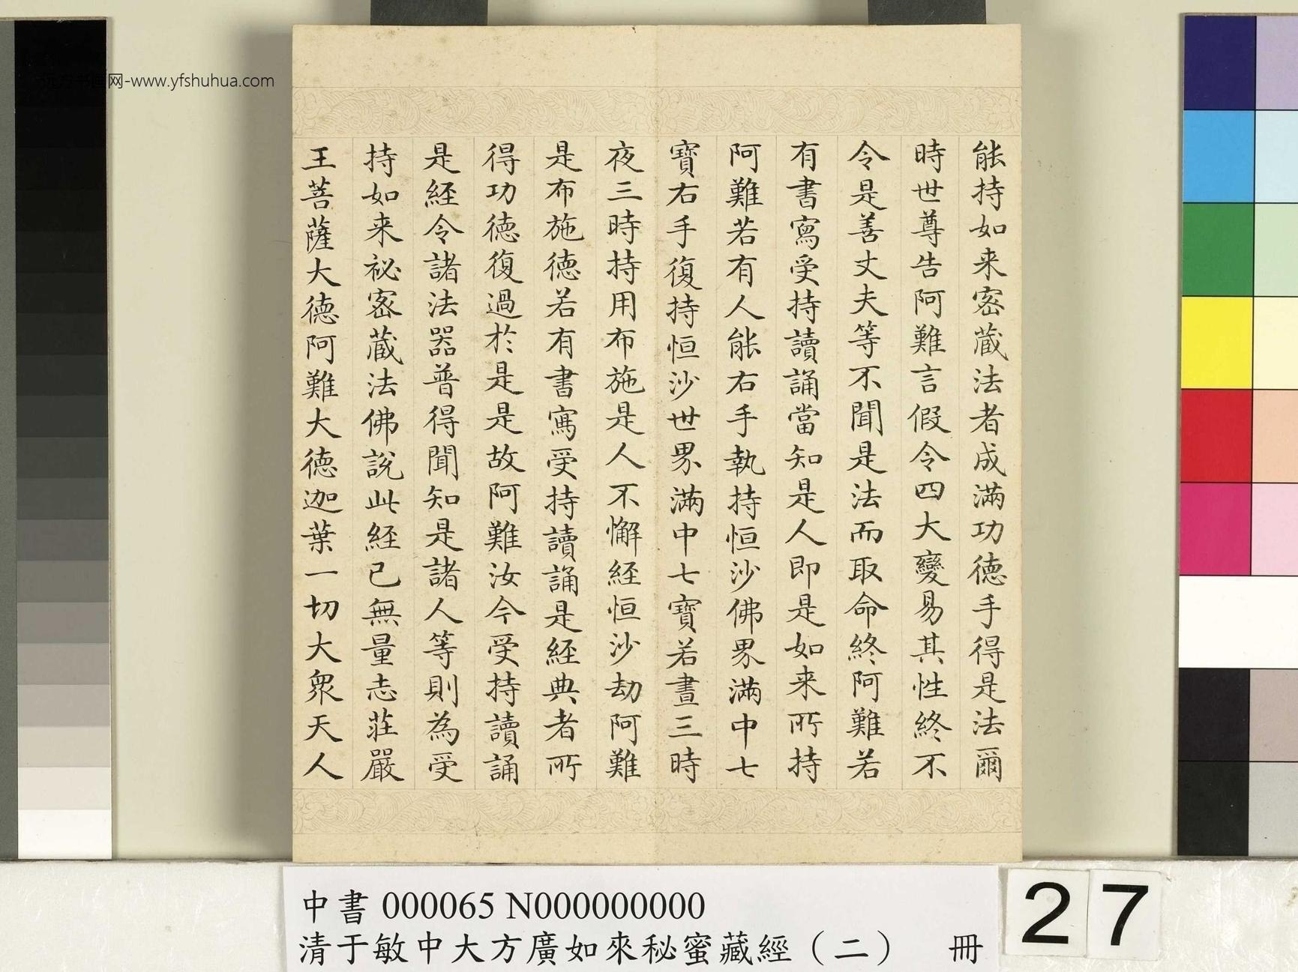 能持如来密蔵法者成滿功德手得是法爾
時世尊告阿難言假令四大變易其性終不
令是善丈夫等不聞是法而取命終阿難若
有書寫受持讀誦當知是人即是如来所持
阿難若有人能右手執持恒沙佛界滿中七
寶右手復持恒沙世界滿中七寶若晝三時
夜三時持用布施是人不懈經恒沙劫阿難
是布施德若有書寫受持讀誦是經典者所
得功德復過於是是故阿難汝今受持讀誦
是經令諸法器普得聞知是諸人等則為受
持如来祕密蔵法佛說此經已無量志莊嚴
王菩薩大德阿難大德迦葉一切大眾天人
网-www.yfshuhua.com
中書 000065 N000000000
清于敏中大方廣如來秘蜜藏經（二） 冊
27